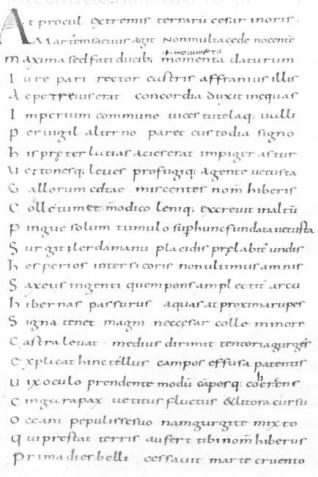 At procul extremis terrarū cesar inoris
Martemsaeuus agit nonmultacede nocentē
maxima sed fati ducib; momenta daturum
Iure pari rector castris affranius illis
Acpetreiuserat concordia duxit inequas
Imperium commune uices tutelaq; ualli
Peruigil alterno paret custodia signo
his preter latias acieserat impiger astur
uettonesq; leues profugiq; agente uetusta
Gallorum celtae miscentes nom̄ hiberis
Colle tumet modico leniq; excreuit inaltū
Pingue solum tumulo sup hunc fundata uetusta
Surgit ilerdamanu placidis prelabit undis
hesperios inter sicoris nonultimus amnis
Saxeus ingenti quem pons amplectit arcu
hibernas passurus aquas at proxima rupes
Signa tenet magni neccesar colle minore
Castra leuat medius dirimit tentoria gurges
Explicat hinc tellus campos effusa patentis
uix oculo prendente modū cāposq; cohercens
Cinga rapax uetitus fluctus & litora cursu
Occani pepulisse suo nam gurgite mixto
Qui prestat terris aufert tibi nom̄ hiberus
Prima dies belli cessauit marte cruento